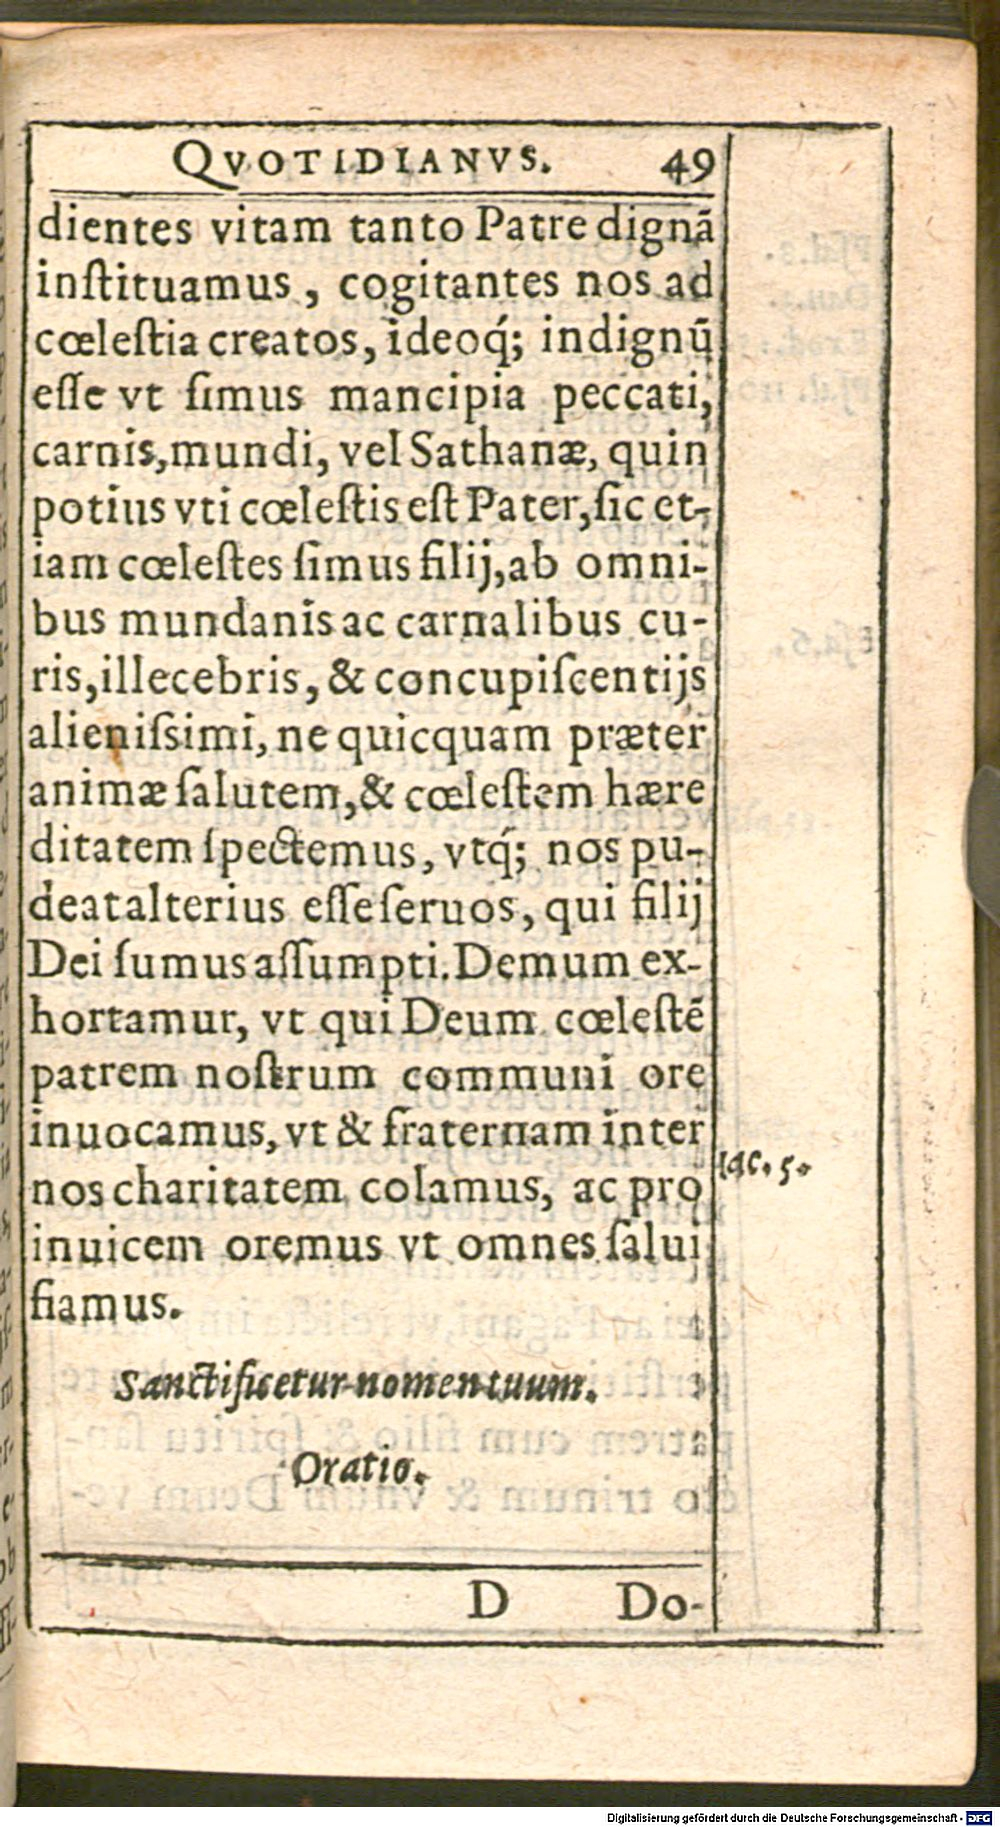 QVOTIDIANVS. 49
dientes vitam tanto Patre dignã
inſtituamus, cogitantes nos ad
cœleſtia creatos, ideoq́; indignũ
eſſe vt ſimus mancipia peccati,
carnis, mundi, vel Sathanæ, quin
potius vti cœleſtis eſt Pater, ſic et-
iam cœleſtes ſimus filij, ab omni-
bus mundanis ac carnalibus cu-
ris, illecebris, & concupiſcentijs
alieniſsimi, ne quicquam præter
animæ ſalutem, & cœleſtem hære
ditatem ſpectemus, vtq́; nos pu-
deat alterius eſſe ſeruos, qui filij
Dei ſumus aſſumpti. Demum ex-
hortamur, vt qui Deum cœleſtẽ
patrem noſtrum communi ore
inuocamus, vt & fraternam inter
nos charitatem colamus, ac pro
Iac. 5.
inuicem oremus vt omnes ſalui
fiamus.
Sanctificetur nomen tuum.
Oratio.
D Do-
Digitalisierung gefördert durch die Deutsche Forschungsgemeinschaft - DFG